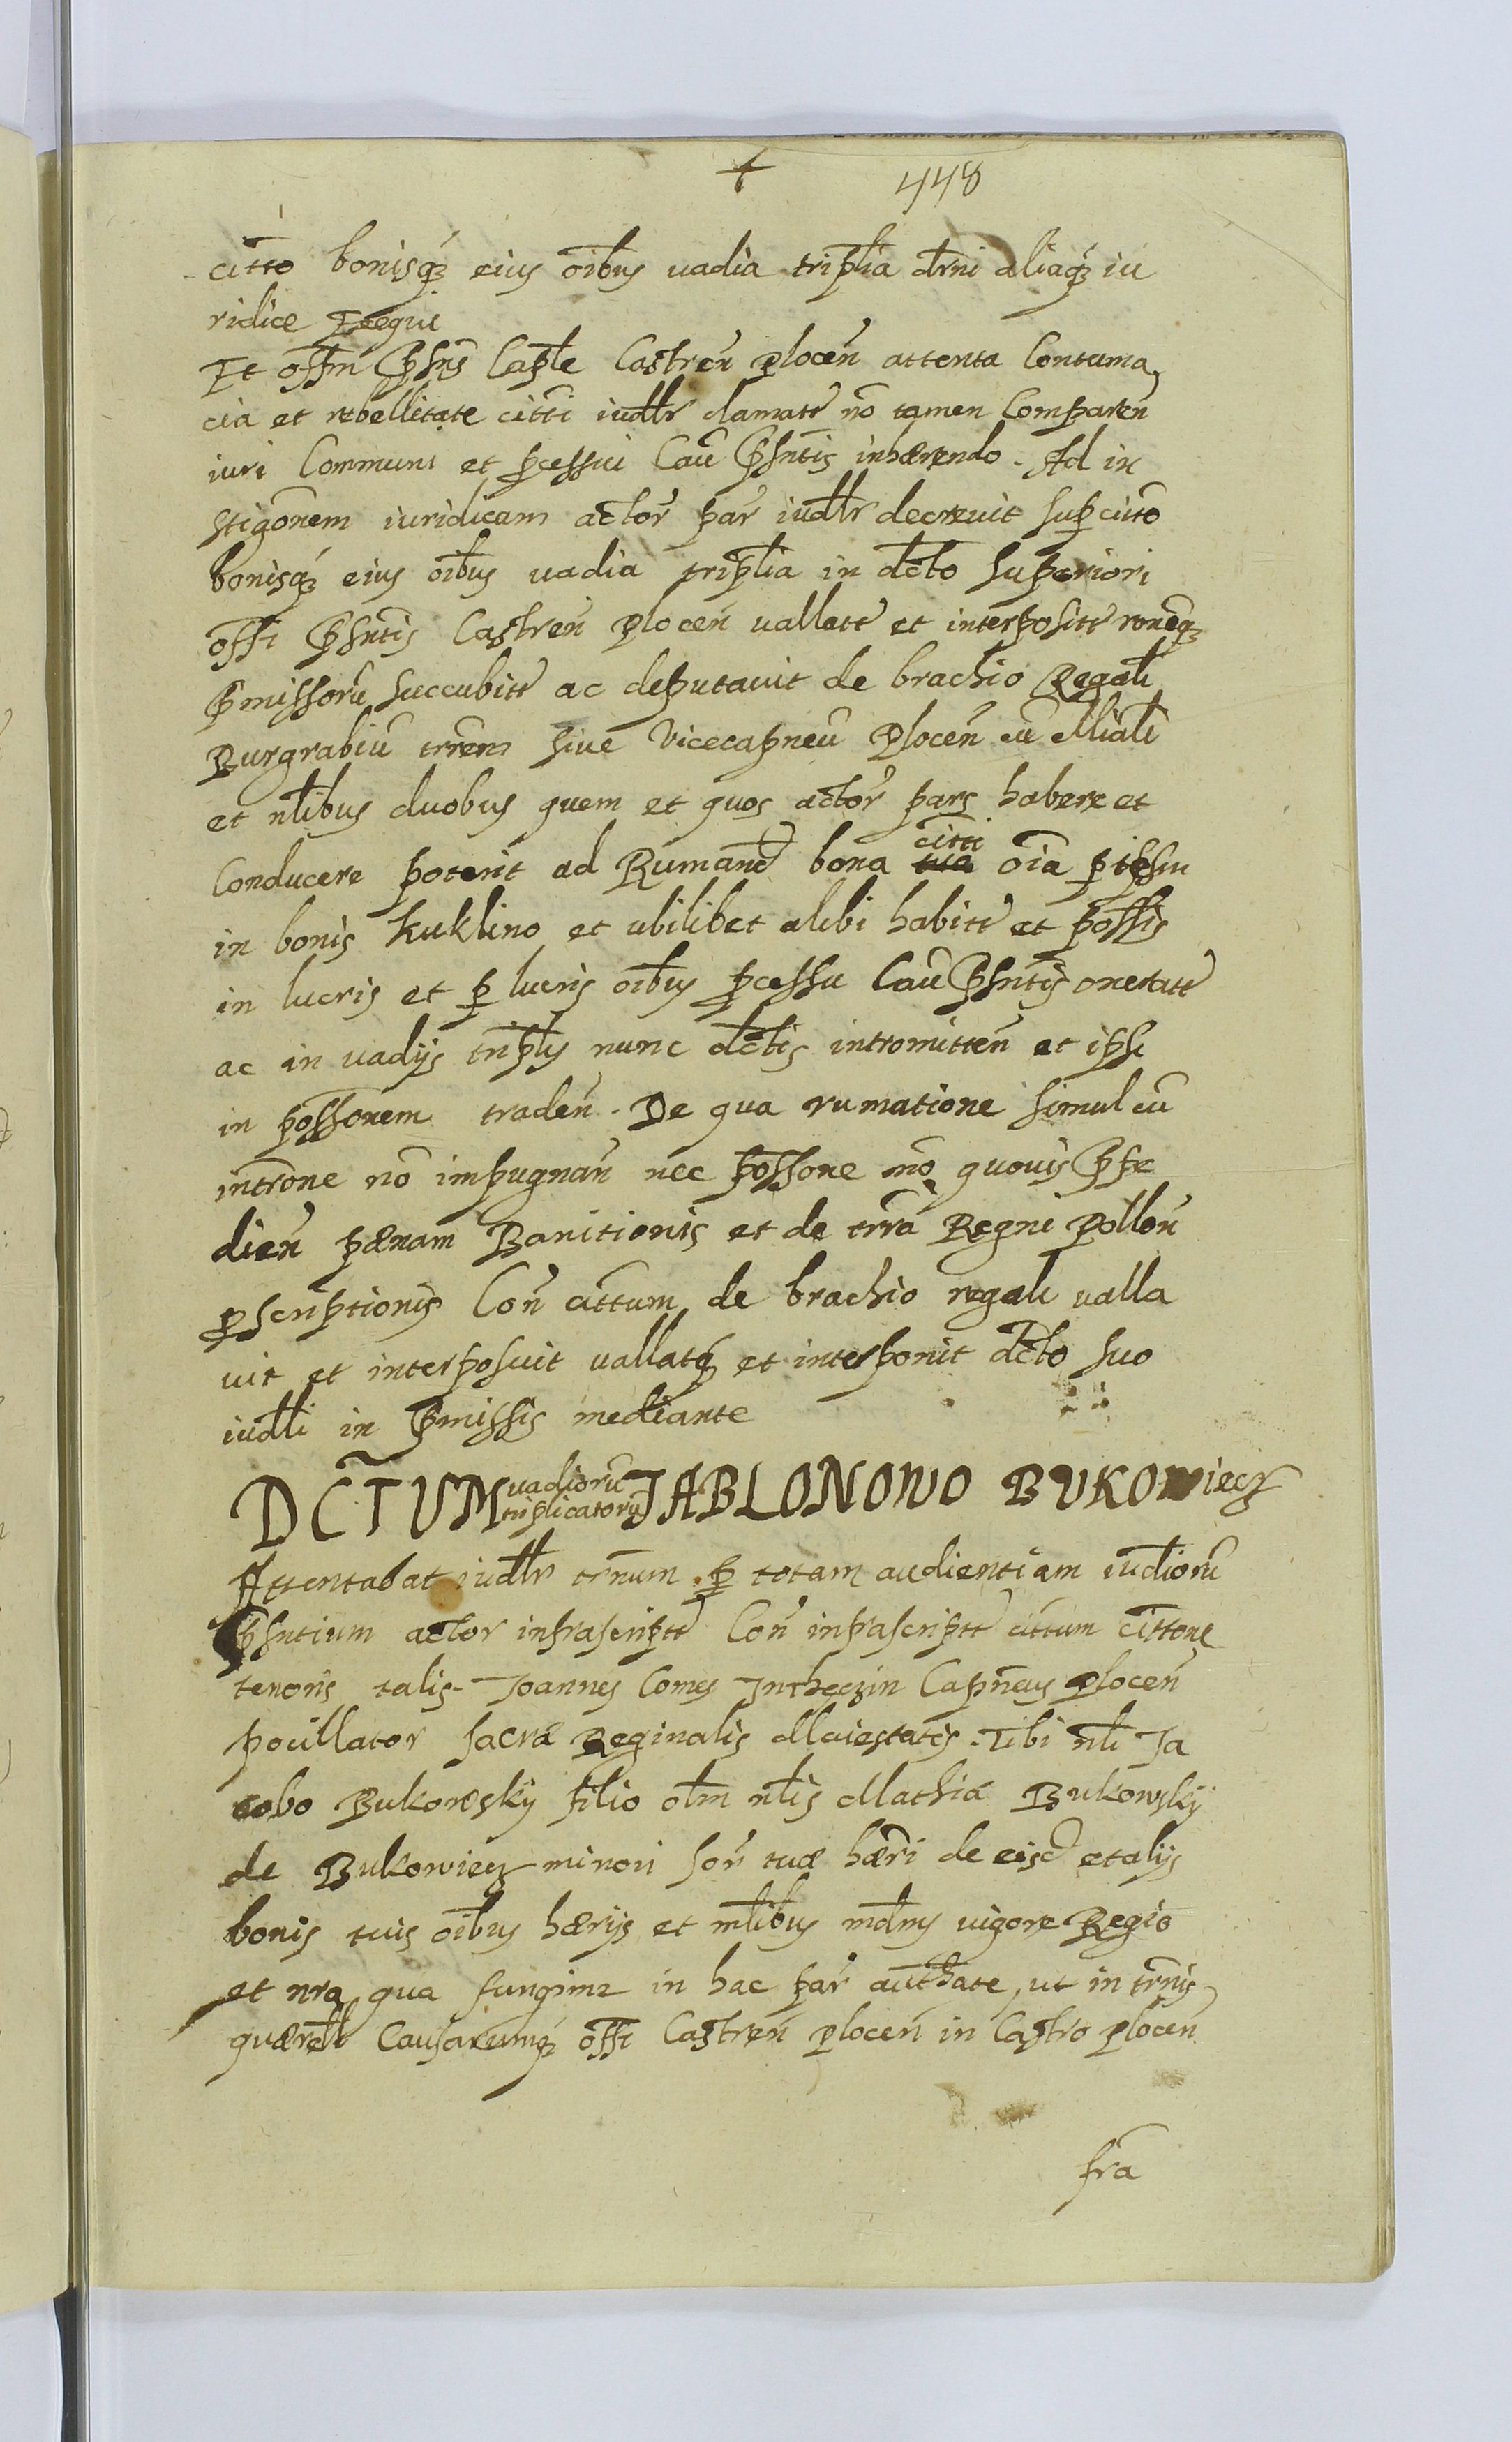 448
citto bonisq́ꝫ eius oībus vadia tripl̃ia dr̃ni aliaq́ꝫ iu
ridice Exequi
Et offm̃ P̃sñs Capl̃e Castreñ Ploceñ attenta Contuma,
cia et rebellitate citti iudl̃r clamatẽ nõ tamen Compareñ
iuri Communi et p̱cessui Caũ P̃sñtis inhærendo. Ad in
stigõnem iuridicam actoř pař iudl̃r decrevit sup̱ citto
bonisq́ꝫ eius oībus vadia tripl̃ia in dc̃to superiori
offi P̃sñtis Castreñ Ploceñ vallatẽ et interpositẽ rõneq̃ꝫ
P̃missorũ succubitẽ ac deputavit de brachio Regali
Burgrabiũ trr̃em sive Vicecapneũ Ploceñ cũ Mial̃i
et nl̃ibus duobus quem et quos actoř pars habere et
Conducere poterit ad Rumand̃ bona citti oīa p̱ ipsiu
in bonis Kuklino et ubilibet alibi habitẽ et poss̃is
in lucris et p̱ lucris oībus p̱cessu Caũ P̃sñtis oneratẽ
ac in vadijs tripl̃ij nunc dc̃tis intromitteñ et ipsi
in poss̃onem tradeñ. De qua rumatione simul cũ
intrõne nõ impugnañ nec poss̃one mõ quovis P̃pe
dieñ pænam Banitionis et de trr̃a Regni Polloñ
p̱scriptionis Coñ cittum de brachio regali valla
vit et interposuit vallatq̃ et interponit dc̃to suo
iudl̃i in P̃missis mediante
DC̃TUM vadiorũ triplicatorũ JABLONOWO BUKOWiecz
Attentabat iudl̃r tr̃num p̱ totam audientiam iudiorũ
P̃sñtium actor infrascriptẽ Coñ infrascriptẽ cittum cittõne
tenoris talis. Joannes Comes In Thęczin Capñeus Ploceñ
pocillator sacræ Reginalis Maiestatis. Tibi nl̃i Ja
cobo Bukowsky filio ol̃m nl̃is Mathiæ Bukowskij
de Bukowiecz minori soř tuæ hær̃i de eisd̃ et alijs
bonis tuis oībus hær̃ijs et ml̃ibus md̃mus vigore Regio
et nr̃a qua fungimꝛ in hac pař auth̃ate, ut in tr̃nis
quærel̃r Causarumq́ꝫ offi Castreñ Ploceñ in Castro Ploceñ
fr̃a